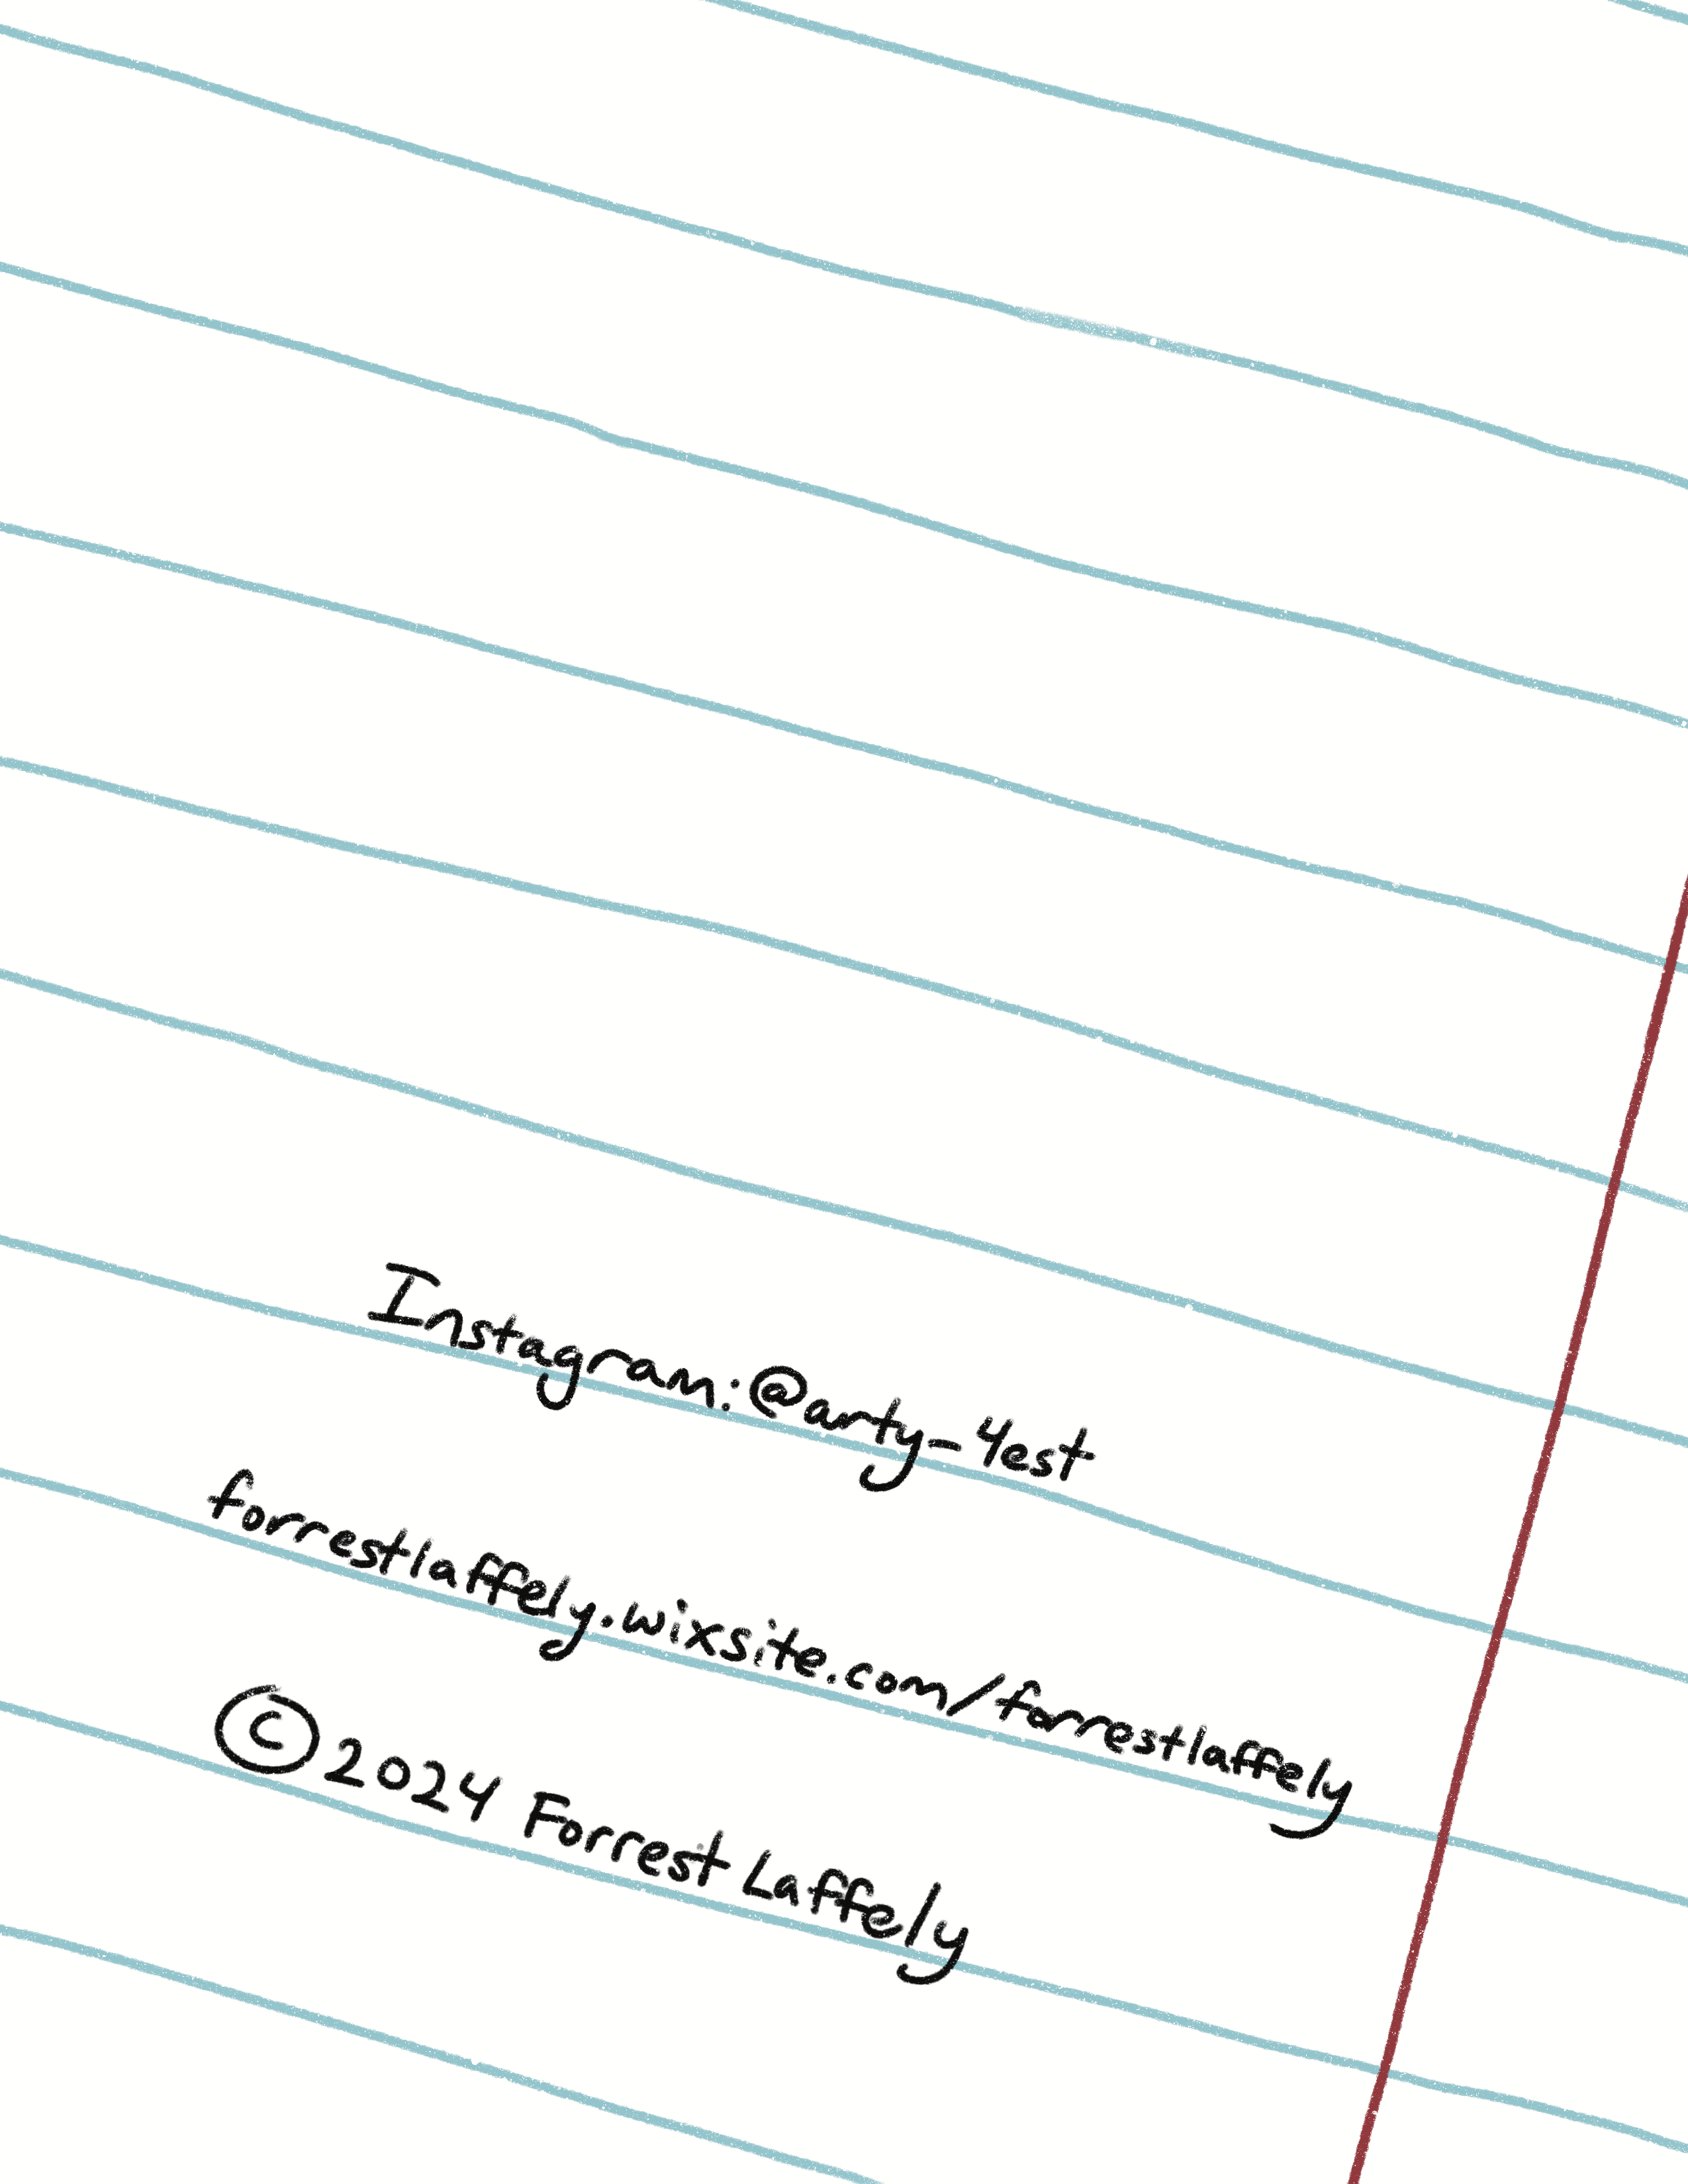 Instagram:@arty-4est
forrestlaffely.wixsite.com/forrestlaffely
©2024 Forrest Laffely